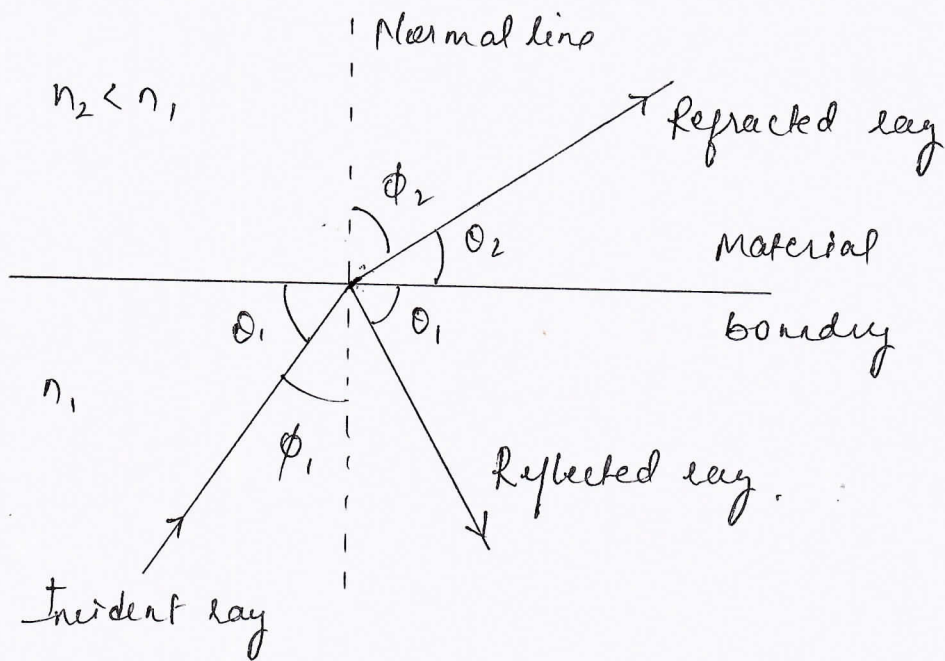 Normal line
n₂ < n₁
Refracted ray
ϕ₂
θ₂
Material
boundry
θ₁
θ₁
n₁
ϕ₁
Reflected ray.
Incident ray